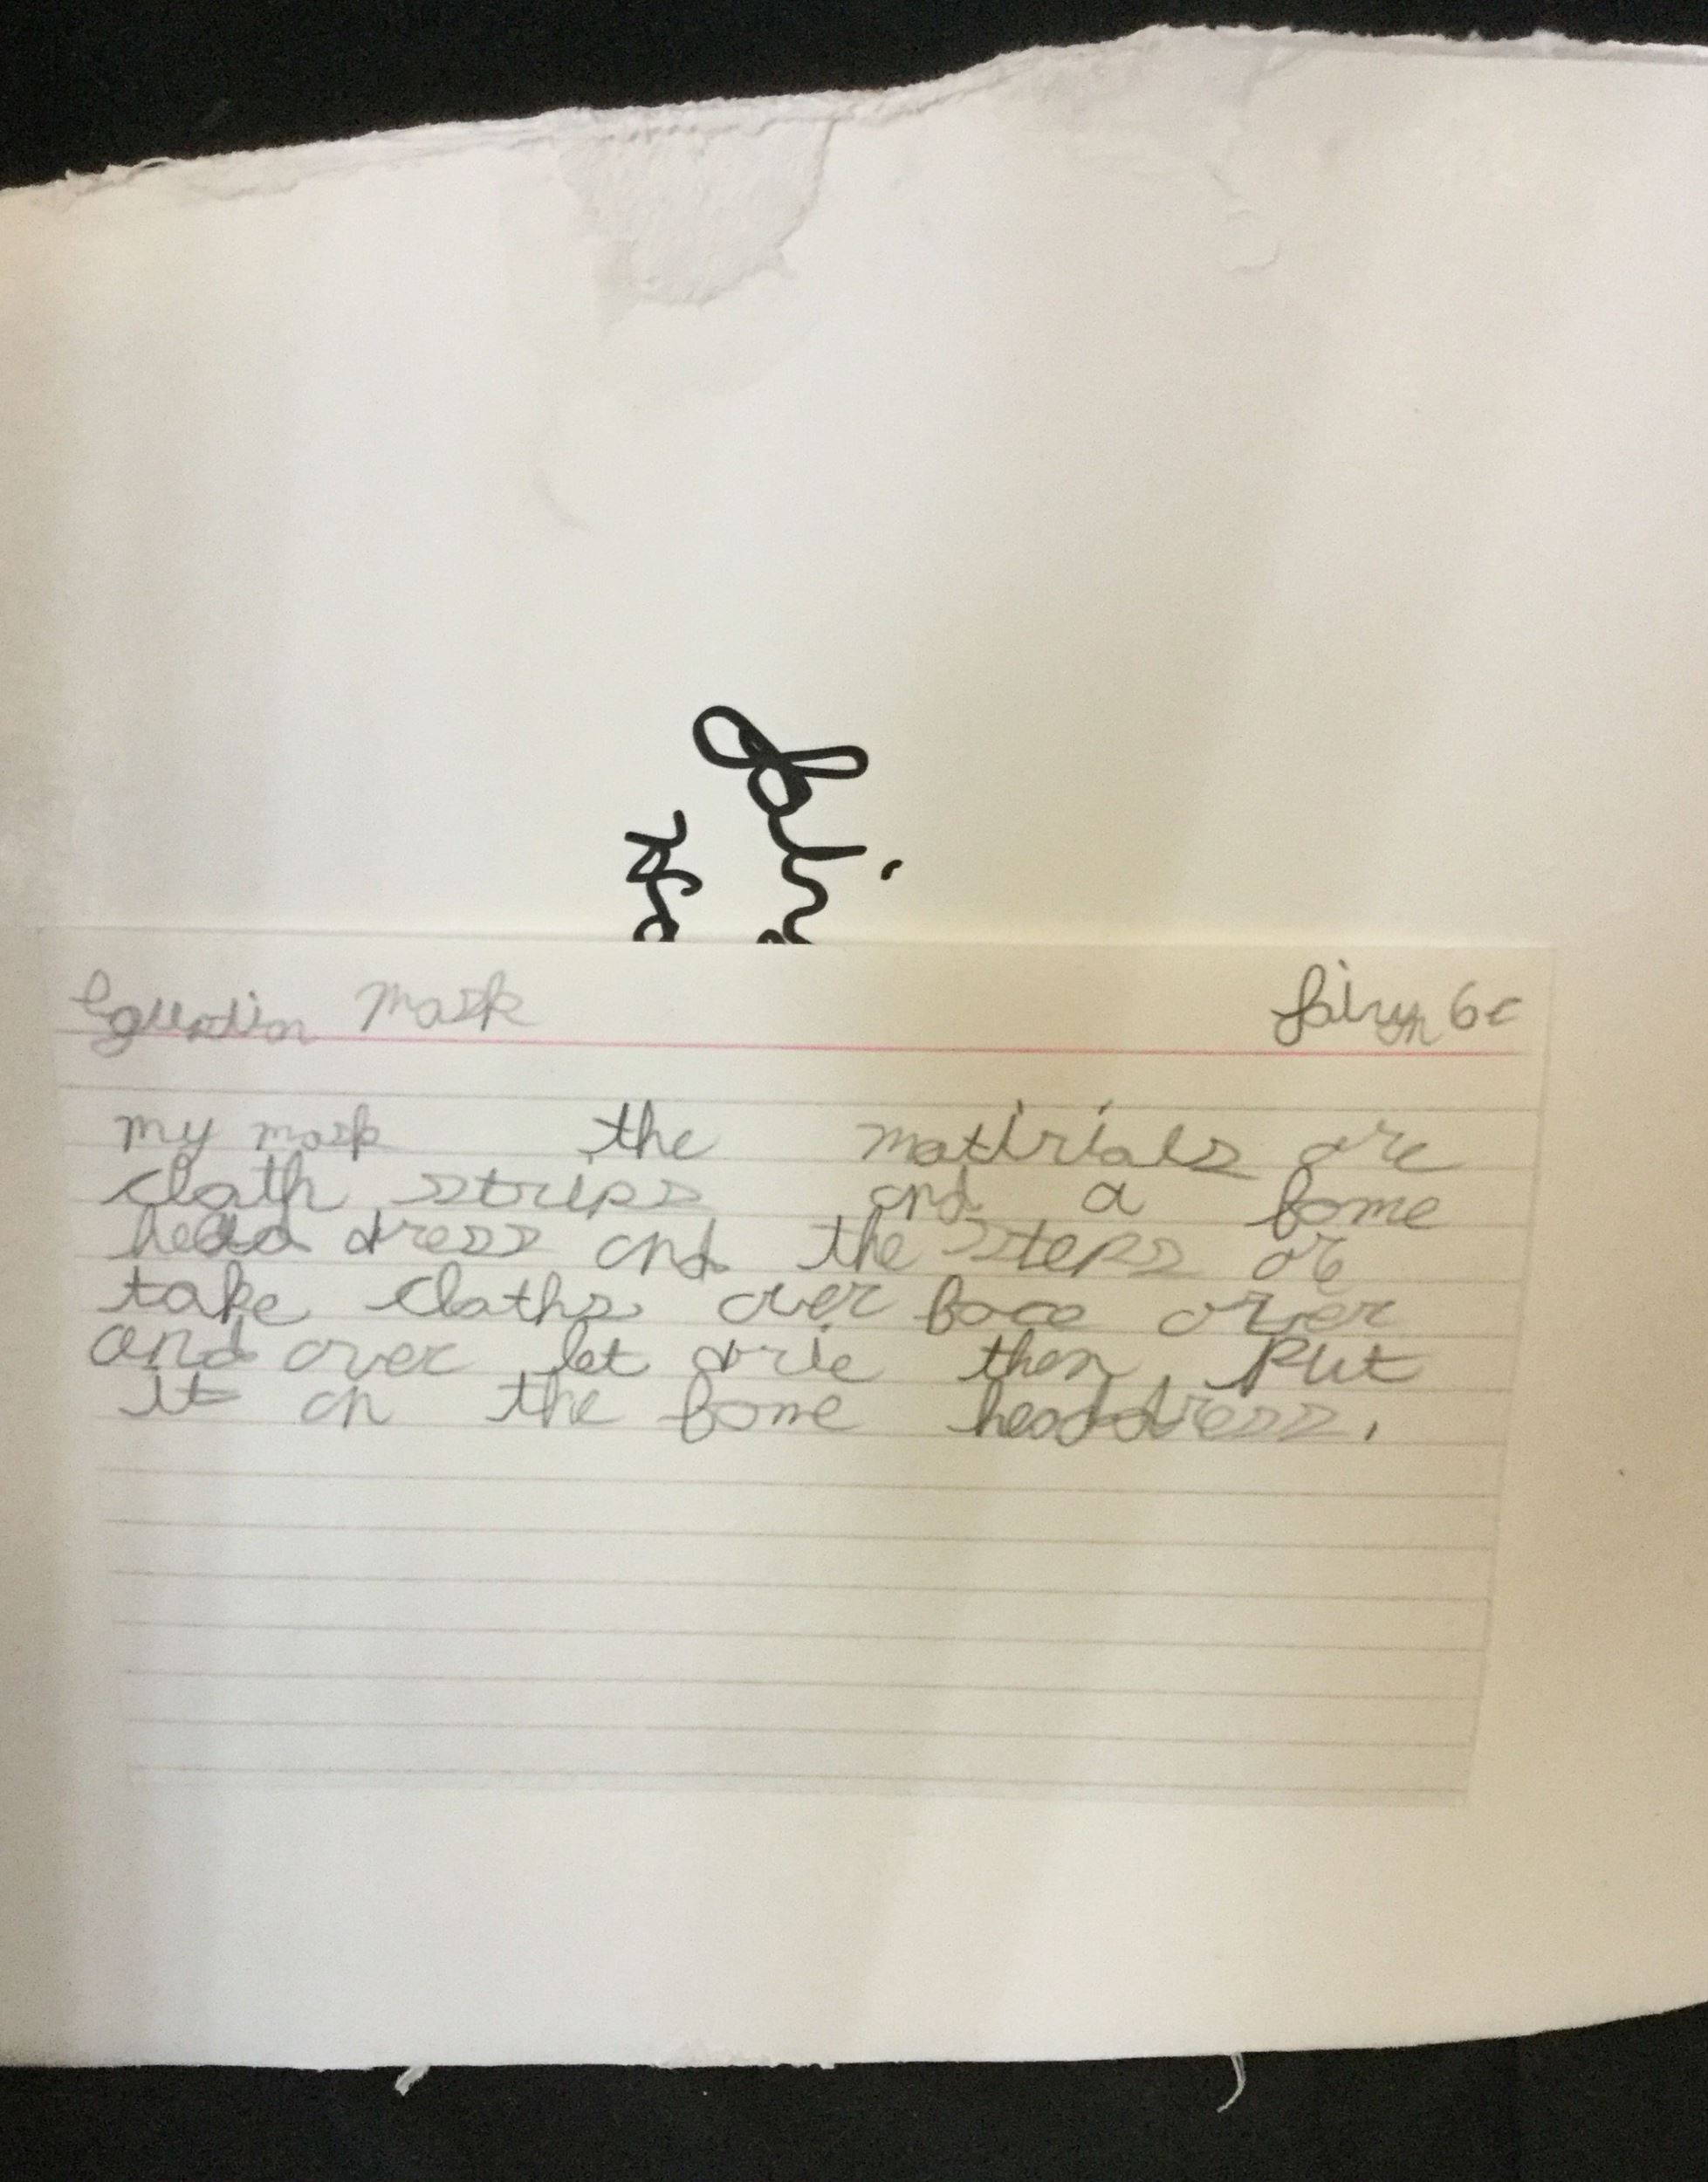 mask
6c
my mask the matirials are
cloth strips and a fome
head dress and the steps are
take cloths over face over
and over let drie then put
it on the fome headdress.